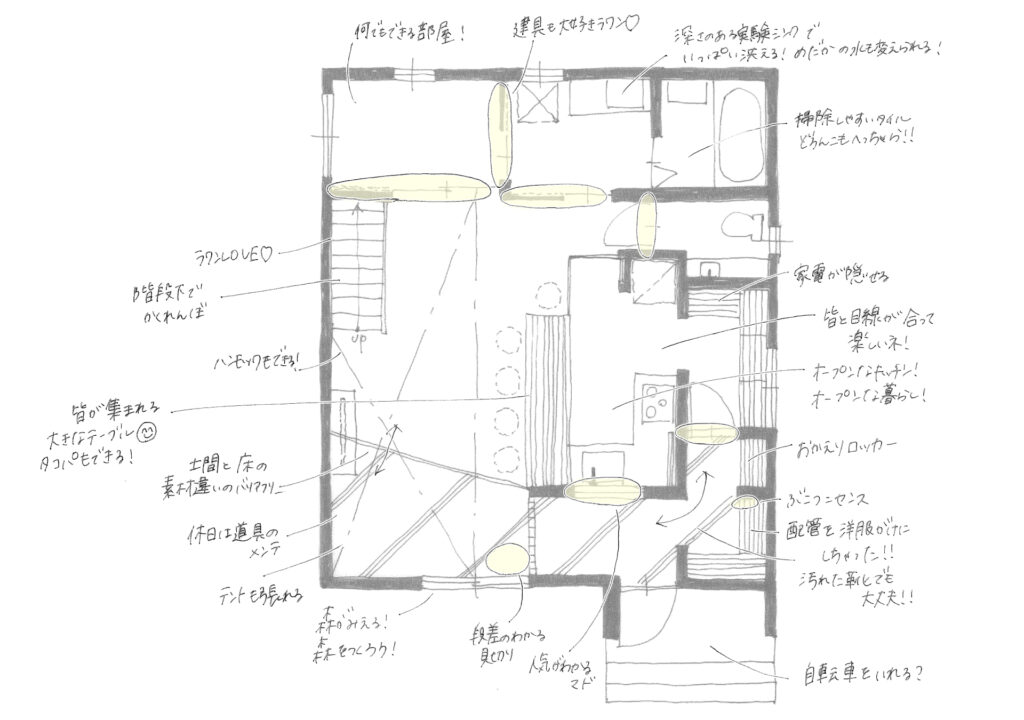 何でもできる部屋！
建具も大好きラワン♡
深さのある実験シンクで
いっぱい洗える！めだかの水も変えられる！
掃除しやすいタイル
どろんこもへっちゃら!!
ラワンLOVE♡
階段下で
かくれんぼ
UP
ハンモックもできる！
皆が集まれる
大きなテーブル
タコパもできる！
土間と床の
素材違いのバリアフリー
休日は道具の
メンテ
テントも張れる
森がみえる！
森をつくろう！
段差のわかる
見切り
人気がわかる
マド
家電が隠せる
皆と目線が合って
楽しいネ！
オープンなキッチン！
オープンな暮らし！
おかえりロッカー
ぶこつニセンス
配管を洋服がけに
しちゃった!!
汚れた靴でも
大丈夫!!
自転車もいれる？